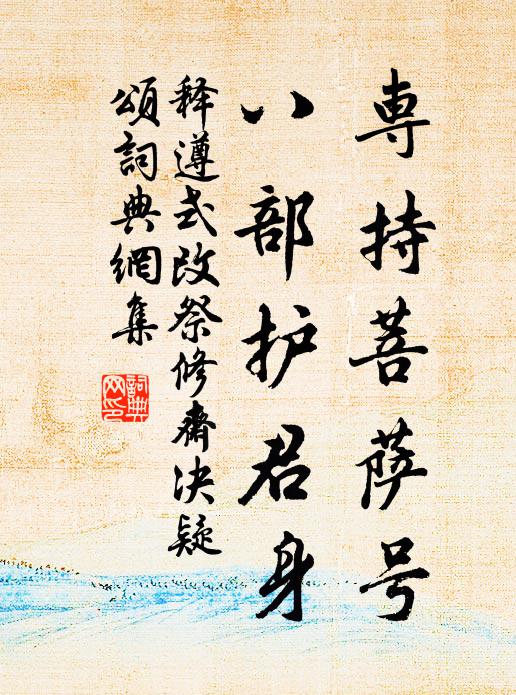 専持菩萨号
八部护君身
释遵式改祭修斋决疑
頌詞典網集
詞典网印